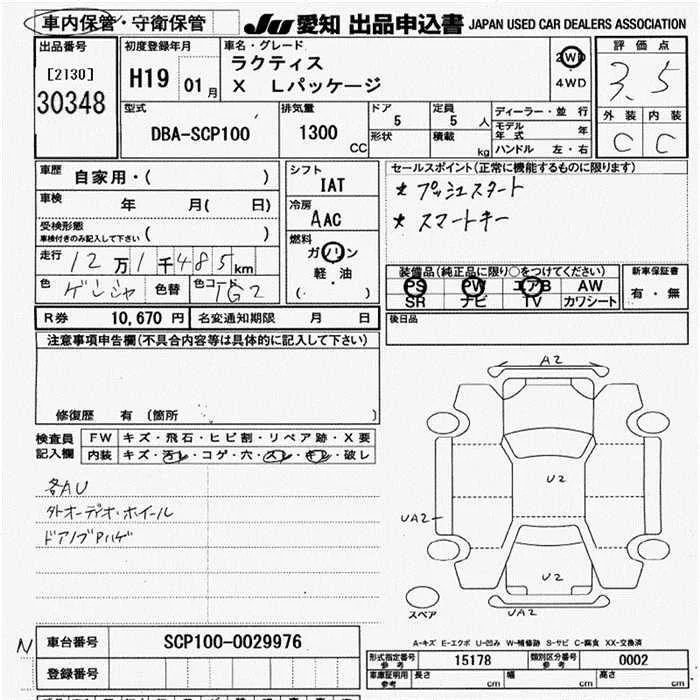 車内保管・守衛保管
JU 愛知 出品申込書 JAPAN USED CAR DEALERS ASSOCIATION
出品番号
[2130]
30348
初度登録年月
H19 01月
車名・グレード
ラクティス
X Lパッケージ
2WD
4WD
評価点
3.5
外装 内装
C C
型式
DBA-SCP100
排気量
1300
CC
ドア
5
形状
定員
5 人
積載
kg
ディーラー・並行
モデル年式 年
ハンドル 左・右
車歴
自家用・( )
車検
年 月( 日)
受検形態
車検付きのみ記入して下さい ( )
走行
12万1千485km
色 ゲンシャ 色替 色コード 1G2
シフト
IAT
冷房
AAC
燃料
ガソリン
軽・油
(・ )
セールスポイント(正常に機能するものに限ります)
★ プッシュスタート
★ スマートキー
装備品(純正品に限り○をつけてください)
PS PW エアB AW
SR ナビ TV カワシート
新車保証書
有・無
後日品
R券 10,670円 名変通知期限 月 日
注意事項申告欄(不具合内容等は具体的に記入して下さい)
修復歴 有 〔箇所 〕
検査員記入欄
FW キズ・飛石・ヒビ割・リペア跡・X要
内装 キズ・汚レ・コゲ・穴・スレ・キレ・破レ
各AU
外オーディオ・ホイール
ドアノブPハゲ
A2
U2
UA2
U2
UA2
スペア
A-キズ E-エクボ U-凹み W-補修跡 S-サビ C-腐食 XX-交換済
N
車台番号 SCP100-0029976
登録番号
形式指定番号
参考
15178
類別区分番号
参考
0002
車庫証明用
参考
長さ cm 幅 cm 高さ cm